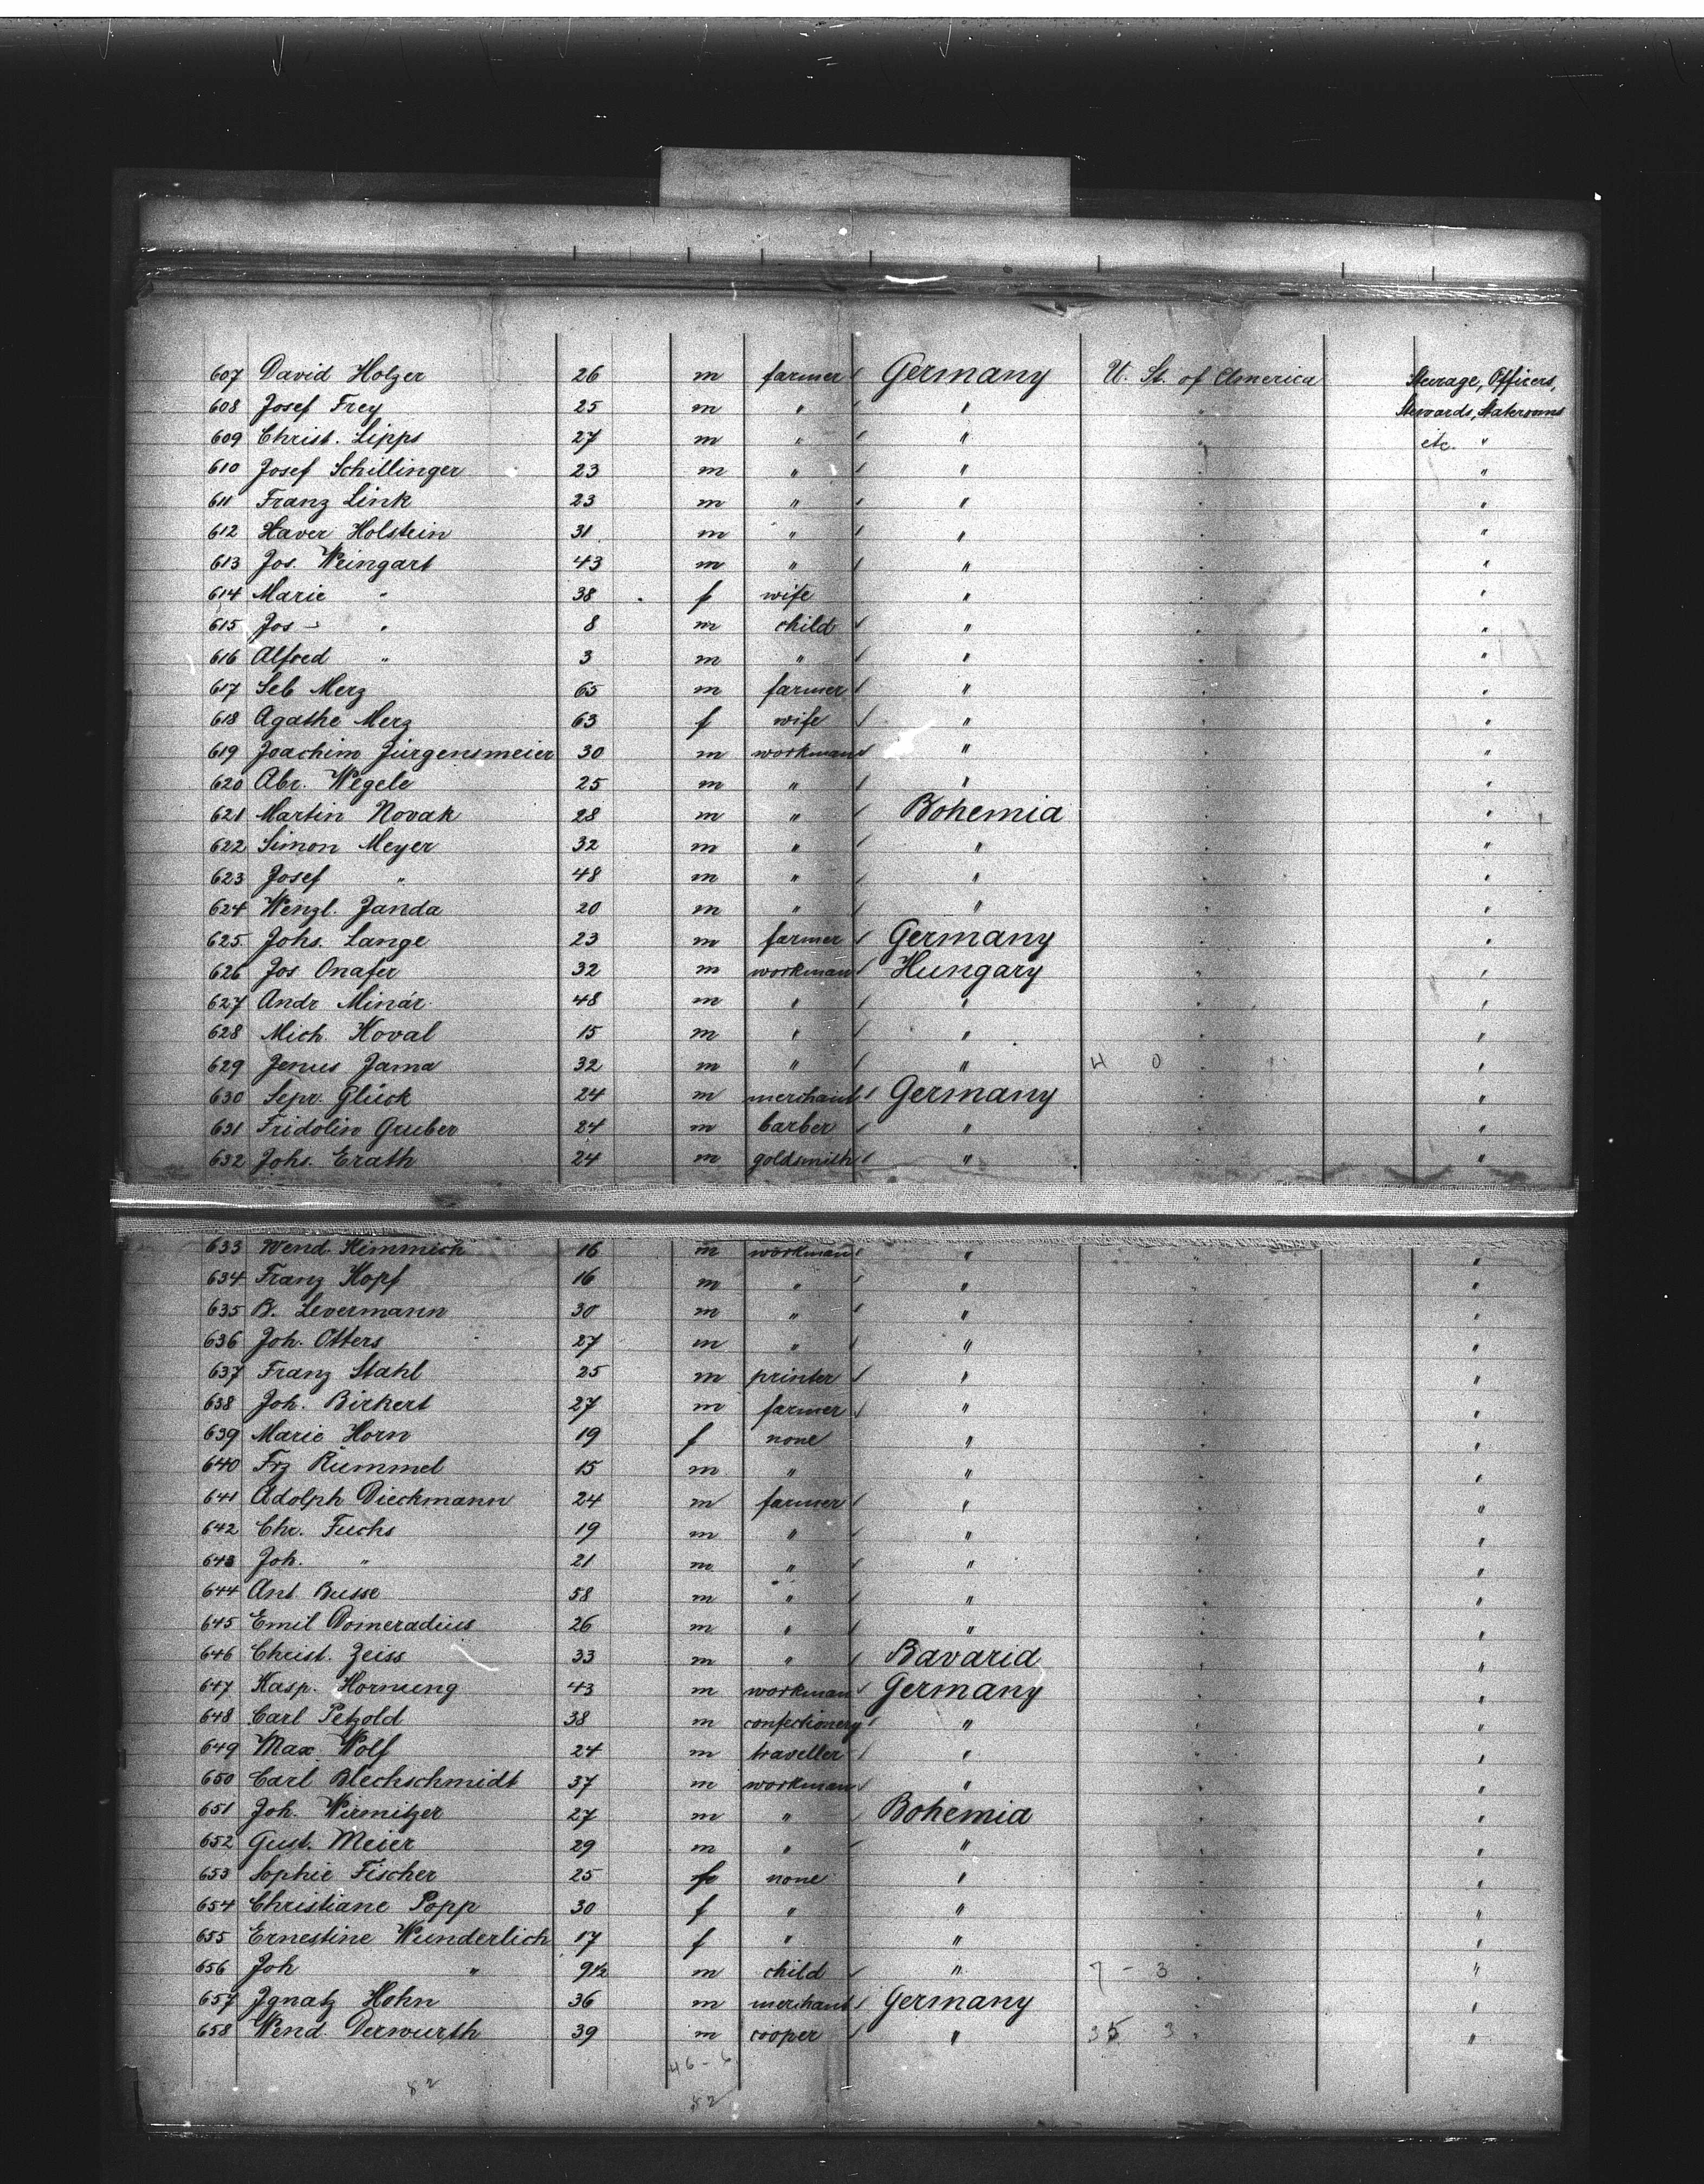 607 David Holzer 26 m farmer Germany U. St. of America Steerage, Officers,
608 Josef Frey 25 m " " " Stewards, Staterooms
609 Christ. Lipps 27 m " " " etc. "
610 Josef Schillinger 23 m " " " "
611 Franz Link 23 m " " " "
612 Xaver Holstein 31 m " " " "
613 Jos. Weingart 43 m " " " "
614 Marie " 38 f wife " " "
615 Jos " 8 m child " " "
616 Alfred " 3 m " " " "
617 Seb Merz 65 m farmer " " "
618 Agathe Merz 63 f wife " " "
619 Joachim Jürgensmeier 30 m workman " " "
620 Abr. Wegele 25 m " " " "
621 Martin Novak 28 m " Bohemia " "
622 Simon Meyer 32 m " " " "
623 Josef " 48 m " " " "
624 Wenzl. Janda 20 m " " " "
625 Johs. Lange 23 m farmer Germany " "
626 Jos Onafer 32 m workman Hungary " "
627 Andr Minár 48 m " " " "
628 Mich. Koval 15 m " " " "
629 Jenus Jama 32 m " " 4 0 " "
630 Glück 24 m merchant Germany " "
631 Fridolin Gruber 24 m barber " " "
632 Johs. Erath 24 m goldsmith " " "
633 Wend. Kimmich 16 m workman " " "
634 Franz Kopf 16 m " " " "
635 B. Levermann 30 m " " " "
636 Joh. Otters 27 m " " " "
637 Franz Stahl 25 m printer " " "
638 Joh. Birkert 27 m farmer " " "
639 Marie Horn 19 f none " " "
640 Frz Rümmel 15 m " " " "
641 Adolph Dieckmann 24 m farmer " " "
642 Chr. Fuchs 19 m " " " "
643 Joh. " 21 m " " " "
644 Ant. Busse 58 m " " " "
645 Emil Domeradius 26 m " " " "
646 Christ. Zeiss 33 m " Bavaria " "
647 Kasp. Hornung 43 m workman Germany " "
648 Carl Petzold 38 m confectionery " " "
649 Max Wolf 24 m traveller " " "
650 Carl Blechschmidt 37 m workman " " "
651 Joh. Wirnitzer 27 m " Bohemia " "
652 Gust. Meier 29 m " " " "
653 Sophie Fischer 25 f none " " "
654 Christiane Popp 30 f " " " "
655 Ernestine Wunderlich 17 f " " " "
656 Joh " 9½ m child " 7 - 3 " "
657 Ignatz Hohn 36 m merchant Germany " "
658 Wend. Derwurth 39 m cooper " 35 3 " "
46 - 6
82 82